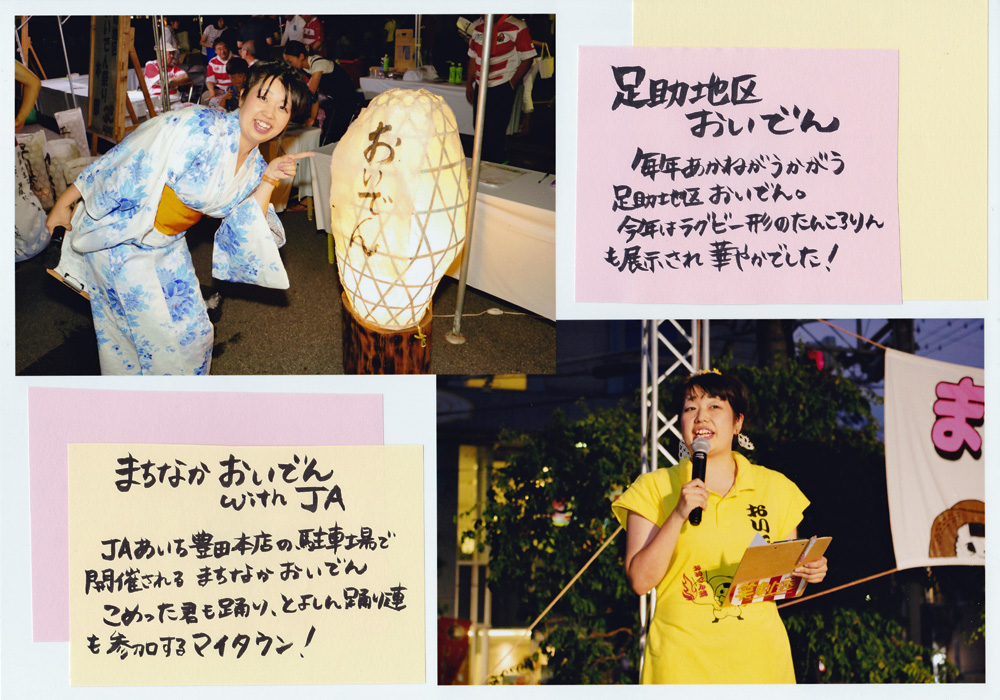 おいでん
足助地区
おいでん
毎年あかねがうかがう
足助地区 おいでん。
今年はラグビー形のたんころりん
も展示され 華やかでした!
まちなか おいでん
with JA
JAあいち豊田本店の駐車場で
開催される まちなか おいでん
こめった君も踊り、とよしん踊り連
も参加するマイタウン!
おい
ま